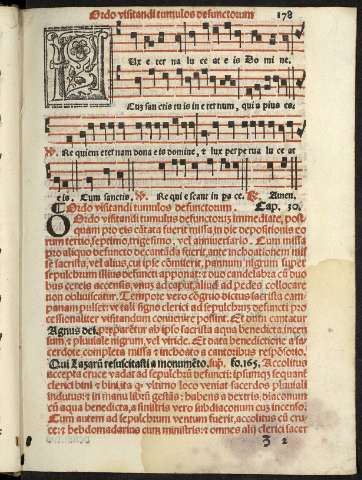 Ordo visitandi tumulos defunctorum 178
LUx e ter na lu ce at e is Do mi ne.
Cuz san ctis tu is in e ter num, qui a pius es.
℣. Re quiem eter nam dona e is domine, & lux per pe tua lu ce at
e is. Cum sanctis. ℣. Re qui e scant in pa ce. ℟. Amen.
Ordo visitandi tumulos defunctorum. Cap. 30.
ORdo visitandi tumulus defunctorũ immediate, post
quam pro eis cãtata fuerit missa in die depositionis eo
rum tertio, septimo, trigesimo, vel anniuersario. Cum missa
pro aliquo defuncto decantãda fuerit, ante inchoationem mis
se sacrista, vel alius, cui ipse cõmiserit, pannum nigrum super
sepulchrum illius defuncti apponat: & duo candelabra cũ duo
bus cereis accensis, vnũ ad caput, aliud ad pedes collocare
non obliuiscatur. Tempore vero cõgruo dictus sacrista cam
panam pulset: vt tali signo clerici ad sepulchrũ defuncti pro
cessionaliter visitandum conuenire possint. Et dum cantatur
Agnus dei, preparetur ab ipso sacrista aqua benedicta, incen
sum, & pluuiale nigrum, vel viride. Et data benedictione a sa
cerdote, completa missa & inchoato a cantoribus respõsorio.
Qui Lazarũ resuscitasti a monumẽto. sup. fo. 165. Accolitus
accepta cruce vadat ad sepulchrum defuncti: ipsumq̃ sequant̃
clerici bini & bini, ita q̃ vltimo loco veniat sacerdos pluuiali
indutus: & in manu librũ gestãs: habens a dextris diaconum
cũ aqua benedicta, a sinistris vero subdiaconum cuz incenso.
Cum autem ad sepulchrum ventum fuerit, accolitus cũ cru-
ce: & hebdomadarius cum ministris: & omnes alij clerici sacer
Z 2